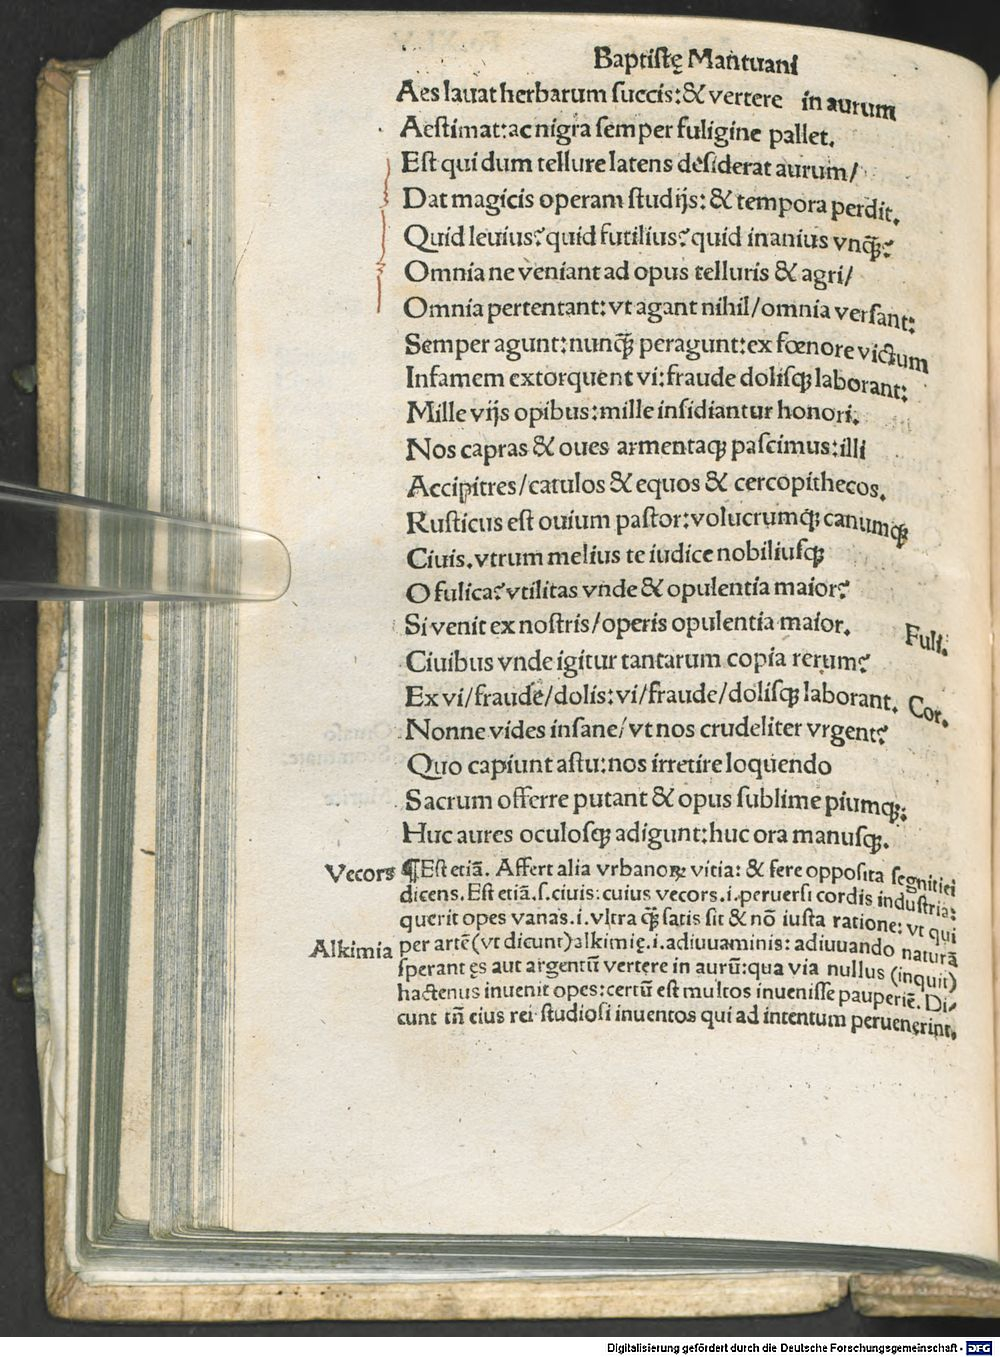 Baptistę Mantuani
Aes lauat herbarum succis: & vertere in aurum
Aestimat: ac nigra semper fuligine pallet.
Est qui dum tellure latens desiderat aurum/
Dat magicis operam studijs: & tempora perdit.
Quid leuius? quid futilius? quid inanius vnꝙ̃?
Omnia ne veniant ad opus telluris & agri/
Omnia pertentant: vt agant nihil/ omnia versant:
Semper agunt: nunꝙ̃ peragunt: ex fœnore victum
Infamem extorquent vi: fraude dolisqꝫ laborant:
Mille vijs opibus: mille insidiantur honori.
Nos capras & oues armentaqꝫ pascimus: illi
Accipitres/ catulos & equos & cercopithecos.
Rusticus est ouium pastor: volucrumqꝫ canumqꝫ
Ciuis. vtrum melius te iudice nobiliusqꝫ
O fulica? vtilitas vnde & opulentia maior?
Si venit ex nostris/ operis opulentia maior. Fuli.
Ciuibus vnde igitur tantarum copia rerum?
Ex vi/ fraude/ dolis: vi/ fraude/ dolisqꝫ laborant. Cor.
Nonne vides insane/ vt nos crudeliter vrgent?
Quo capiunt astu: nos irretire loquendo
Sacrum offerre putant & opus sublime piumqꝫ:
Huc aures oculosqꝫ adigunt: huc ora manusqꝫ.
Vecors ¶Est etiã. Affert alia vrbanoꝝ vitia: & fere opposita segnitiei
dicens. Est etiã .s. ciuis: cuius vecors .i. peruersi cordis industria:
querit opes vanas .i. vltra ꝙ̃ satis sit & nõ iusta ratione: vt qui
Alkimia per artẽ (vt dicunt) alkimię .i. adiuuaminis: adiuuando naturã
sperant ęs aut argentũ vertere in aurũ: qua via nullus (inquit)
hactenus inuenit opes: certũ est multos inuenisse pauperiẽ. Di-
cunt tñ eius rei studiosi inuentos qui ad intentum peruenerint.
Digitalisierung gefördert durch die Deutsche Forschungsgemeinschaft - DFG